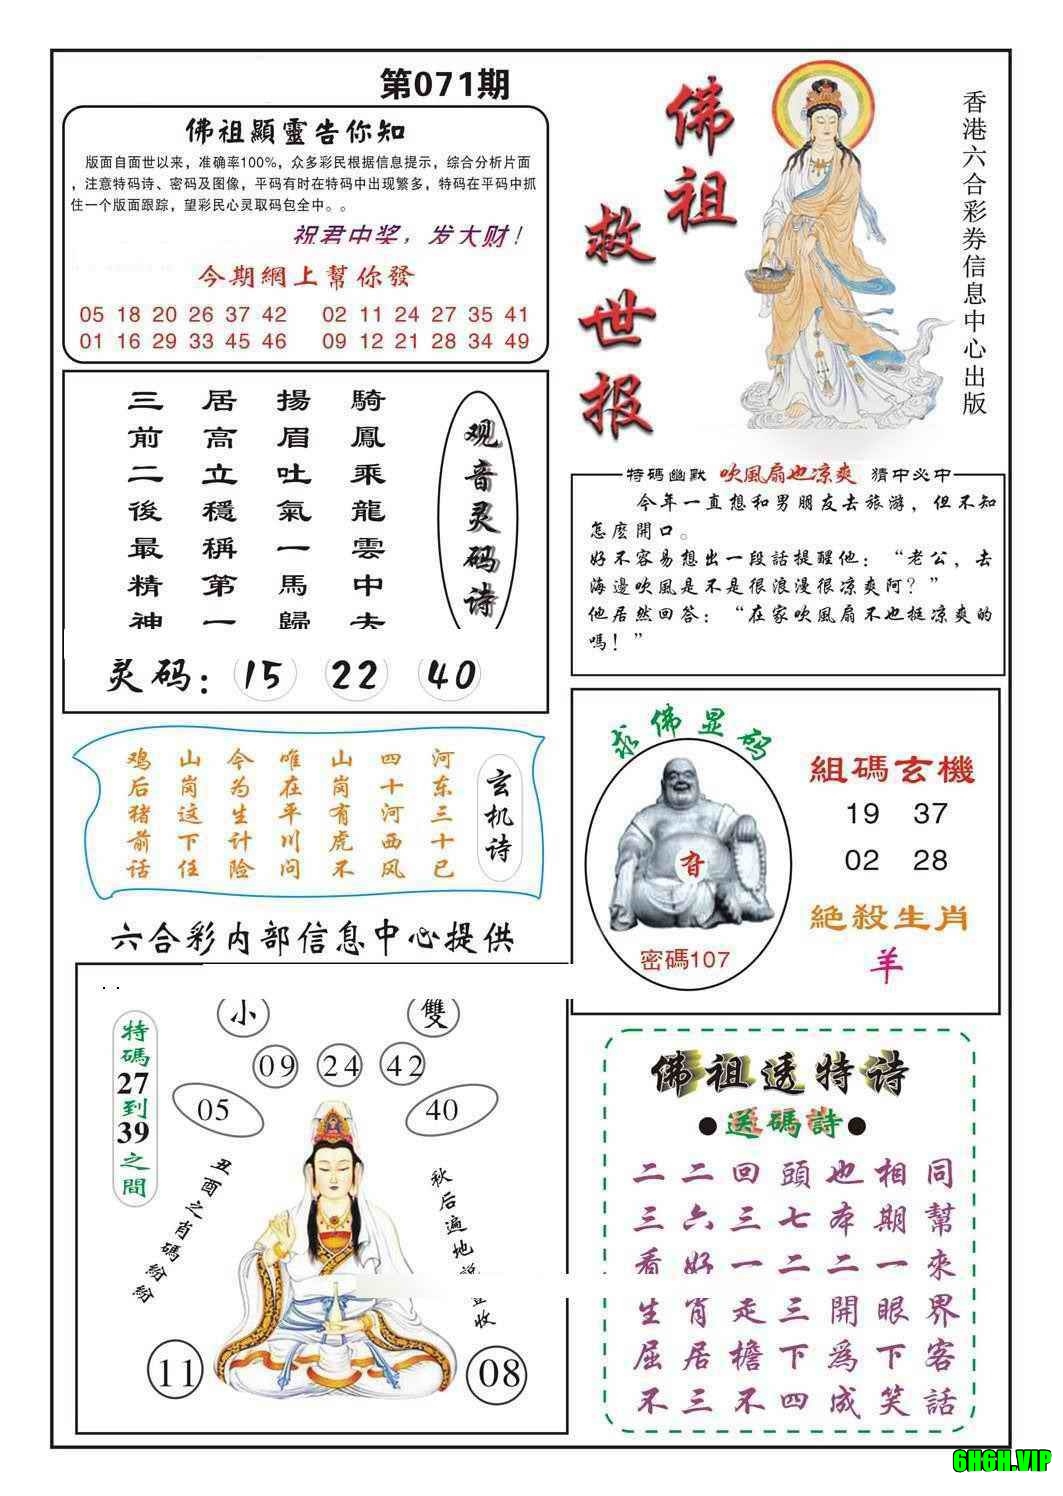 第071期
佛祖顯靈告你知
版面自面世以来，准确率100%，众多彩民根据信息提示，综合分析片面
，注意特码诗、密码及图像，平码有时在特码中出现繁多，特码在平码中抓
住一个版面跟踪，望彩民心灵取码包全中。。
祝君中奖，发大财！
今期網上幫你發
05 18 20 26 37 42 02 11 24 27 35 41
01 16 29 33 45 46 09 12 21 28 34 49
佛祖
救世报
香港六合彩券信息中心出版
观音灵码诗
騎鳳乘龍雲中夫
揚眉吐氣一馬歸
居高立穩稱第一
三前二後最精神
灵码：15 22 40
特碼幽默 吹風扇也凉爽 猜中必中
今年一直想和男朋友去旅游，但不知
怎麽開口。
好不容易想出一段話提醒他：“老公，去
海邊吹風是不是很浪漫很凉爽阿？”
他居然回答：“在家吹風扇不也挺凉爽的
嗎！”
玄机诗
河东三十已
四十河西风
山岗有虎不
唯在平川问
今为生计险
山岗这下任
鸡后猪前话
求佛显码
密碼107
組碼玄機
19 37
02 28
絕殺生肖
羊
六合彩内部信息中心提供
小 雙
09 24 42
05 40
特碼27到39之間
丑酉之肖碼紛紛
秋后遍地
收
11 08
佛祖透特诗
●送碼詩●
二二回頭也相同
三六三七本期幫
看好一二二一來
生肖走三開眼界
屈居檐下爲下客
不三不四成笑話
6H6H.VIP